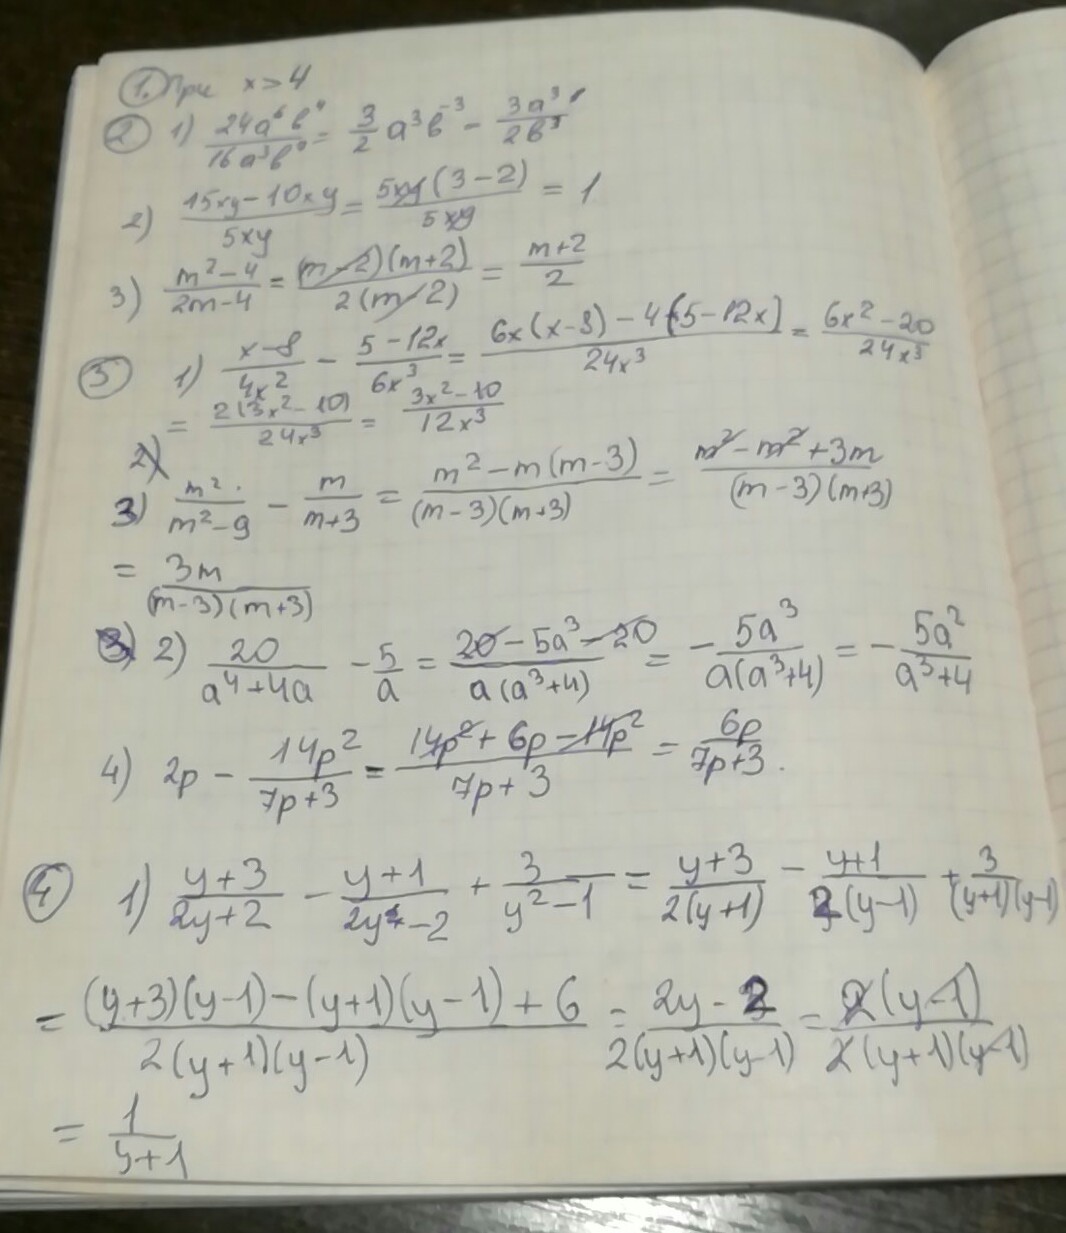 1. При x > 4
2 1) 24a⁶b⁴/16a³b⁷ = 3/2 a³b⁻³ - 3a³/2b³
2) 15xy-10xy/5xy = 5xy(3-2)/5xy = 1
3) m²-4/2m-4 = (m-2)(m+2)/2(m-2) = m+2/2
3 1) x-8/4x² - 5-12x/6x³ = 6x(x-8)-4[5-12x]/24x³ = 6x²-20/24x³
= 2(3x²-10)/24x³ = 3x²-10/12x³
2)
3) m²/m²-9 - m/m+3 = m²-m(m-3)/(m-3)(m+3) = m²-m²+3m/(m-3)(m+3)
= 3m/(m-3)(m+3)
3) 2) 20/a⁴+4a - 5/a = 20-5a³-20/a(a³+4) = - 5a³/a(a³+4) = - 5a²/a³+4
4) 2p - 14p²/7p+3 = 14p²+6p-14p²/7p+3 = 6p/7p+3.
4 1) y+3/2y+2 - y+1/2y-2 + 3/y²-1 = y+3/2(y+1) - y+1/2(y-1) + 3/(y+1)(y-1)
= (y+3)(y-1)-(y+1)(y-1)+6/2(y+1)(y-1) = 2y-2/2(y+1)(y-1) = 2(y-1)/2(y+1)(y-1)
= 1/y+1